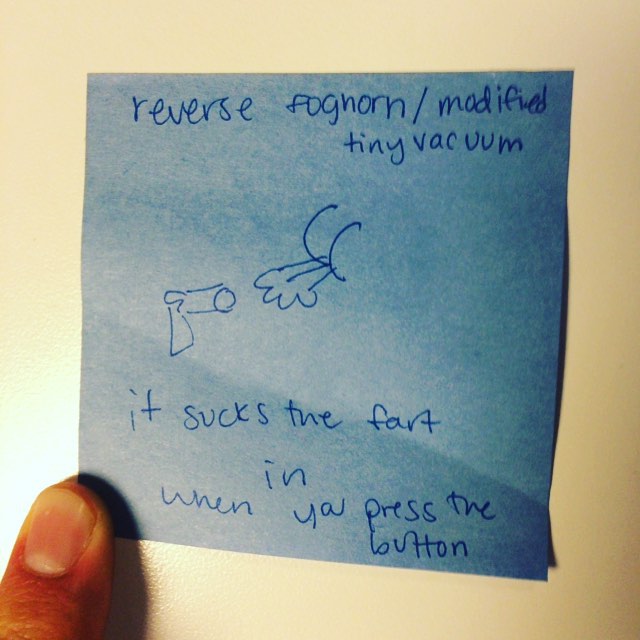 reverse foghorn / modified
tiny vacuum
it sucks the fart
in
when you press the
button